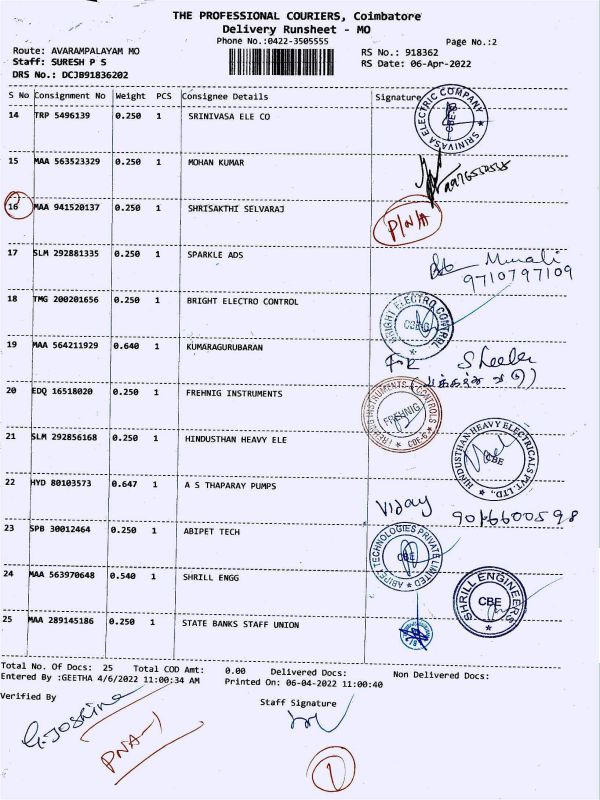 THE PROFESSIONAL COURIERS, Coimbatore
Delivery Runsheet - MO
Phone No.:0422-3505555
Page No.:2
Route: AVARAMPALAYAM MO
RS No.: 918362
Staff: SURESH P S
RS Date: 06-Apr-2022
DRS No.: DCJB91836202
S No Consignment No Weight PCS Consignee Details Signature
14 TRP 5496139 0.250 1 SRINIVASA ELE CO
SRINIVASA ELECTRIC COMPANY CBE
15 MAA 563523329 0.250 1 MOHAN KUMAR
16 MAA 941520137 0.250 1 SHRISAKTHI SELVARAJ P/N/A
17 SLM 292881335 0.250 1 SPARKLE ADS
Murali
9710797109
18 TMG 200201656 0.250 1 BRIGHT ELECTRO CONTROL
BRIGHT ELECTRO CONTROL CBE-6
19 MAA 564211929 0.640 1 KUMARAGURUBARAN
20 EDQ 16518020 0.250 1 FREHNIG INSTRUMENTS
FREHNIG INSTRUMENTS & CONTROLS FREHNIG CBE-6
21 SLM 292856168 0.250 1 HINDUSTHAN HEAVY ELE
HINDUSTHAN HEAVY ELECTRICALS PVT. LTD., CBE
22 HYD 80103573 0.647 1 A S THAPARAY PUMPS
Vijay
23 SPB 30012464 0.250 1 ABIPET TECH
ABIPET TECHNOLOGIES PRIVATE LIMITED CBE
24 MAA 563970648 0.540 1 SHRILL ENGG
SHRILL ENGINEERS CBE
25 MAA 289145186 0.250 1 STATE BANKS STAFF UNION
Total No. Of Docs: 25 Total COD Amt: 0.00 Delivered Docs: Non Delivered Docs:
Entered By :GEETHA 4/6/2022 11:00:34 AM Printed On: 06-04-2022 11:00:40
Verified By
Staff Signature
G.Joshina
PNA-1
1